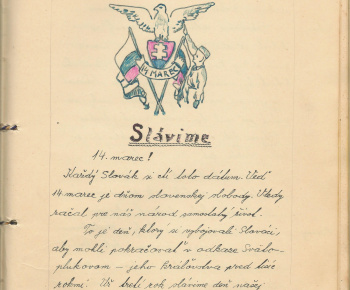 14. MAREC
Slávime
14. marec!
Každý Slovák si ctí toto dátum. Veď
14 marec je dňom slovenskej slobody. Vtedy
začal pre náš národ samostatný život.
To je deň, ktorý si vybojovali Slováci,
aby mohli pokračovať v odkaze Sväto-
plukovom – jeho kráľovstva pred tisíc
rokmi. Už tretí rok slávime deň našej